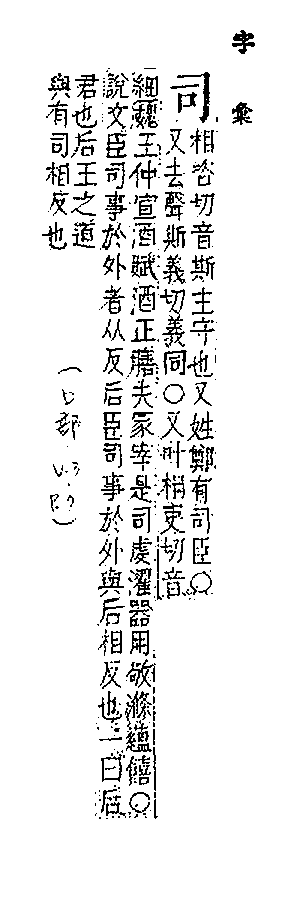 字彙
司
相咨切音斯主守也又姓鄭有司臣○
又去聲斯義切義同○又叶梢吏切音
細魏王仲宣酒賦酒正膳夫冢宰是司虔濯器用敬滌蘊饎○
說文臣司事於外者从反后臣司事於外與后相反也一曰后
君也后王之道
與有司相反也
(口部 U.3 P.9)